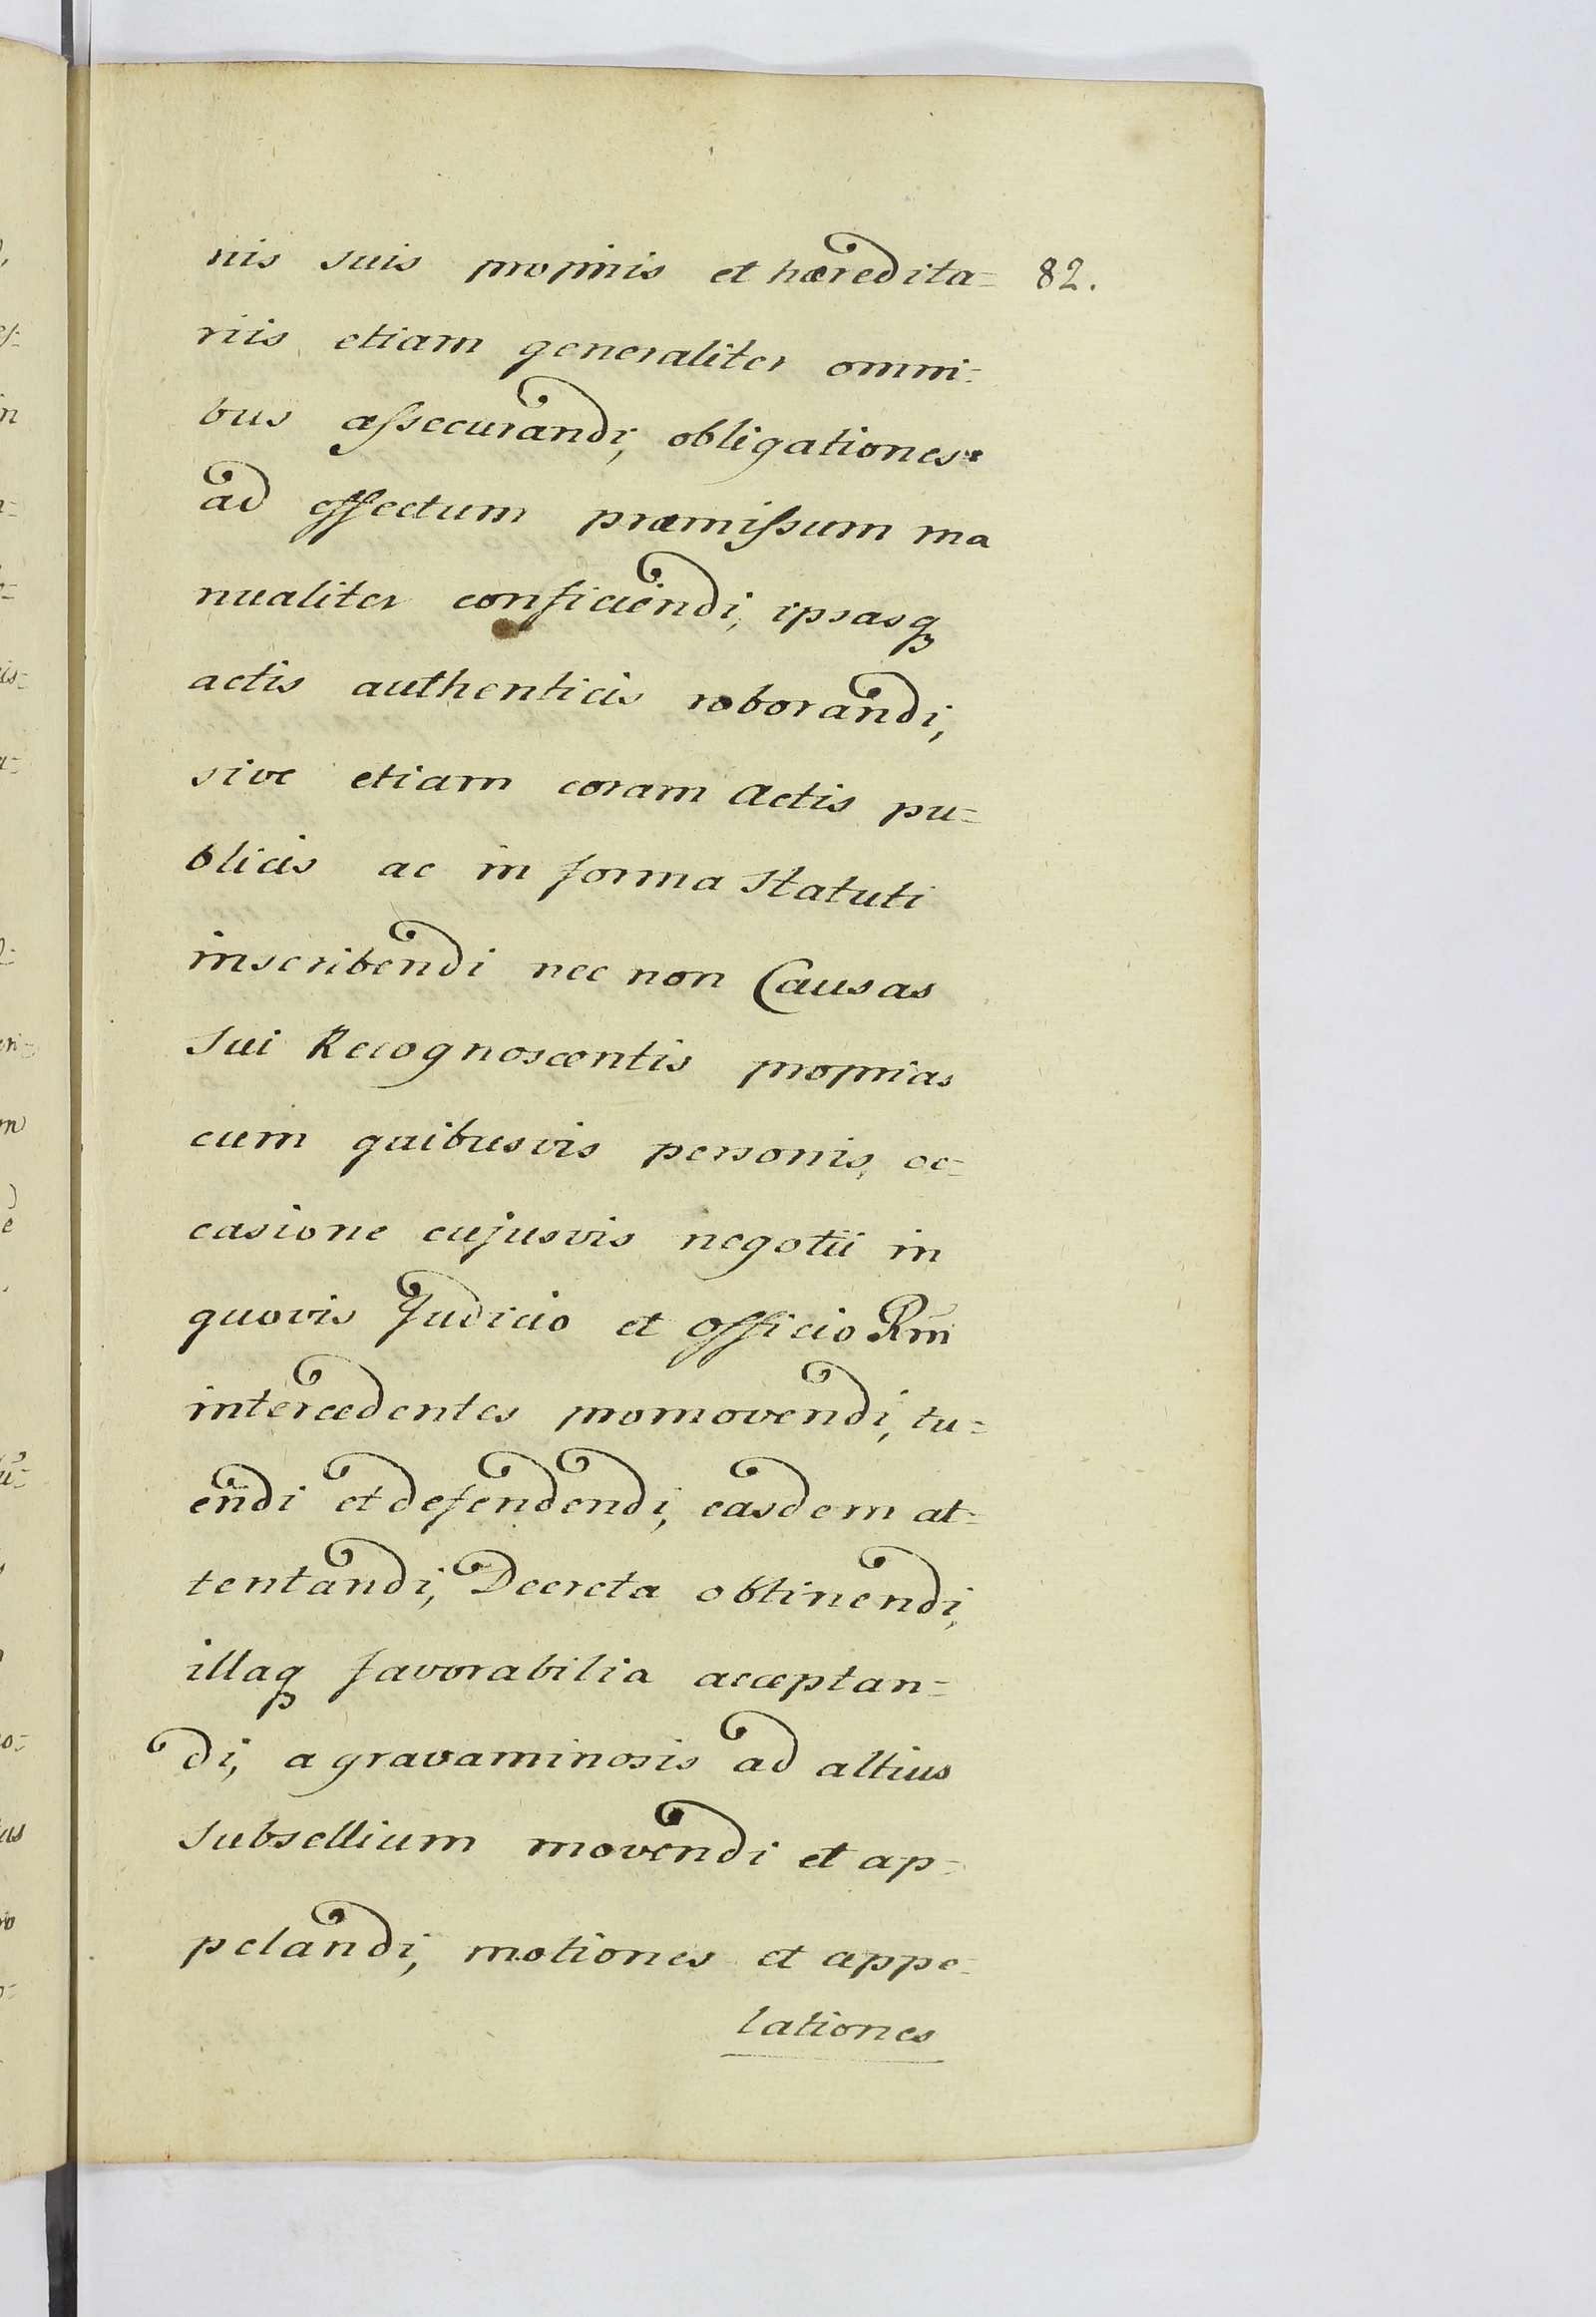 nis suis propriis et hæredita= 82.
riis etiam generaliter omni=
bus assecurandi, obligationes
ad effectum præmissum ma
nualiter conficiendi, ipsasq
actis authenticis roborandi,
sive etiam coram Actis pu=
blicis ac in forma Statuti
inscribendi nec non Causas
Sui Recognoscentis proprias
cum quibusvis personis, oc=
casione cujusvis negotii in
quovis Judicio et officio Rni
intercedentes promovendi, tu=
endi et defendendi, easdem at=
tentandi, Decreta obtinendi,
illaq favorabilia acceptan=
di, a gravaminosis ad altius
Subsellium movendi et ap=
pelandi, motiones et appe=
lationes